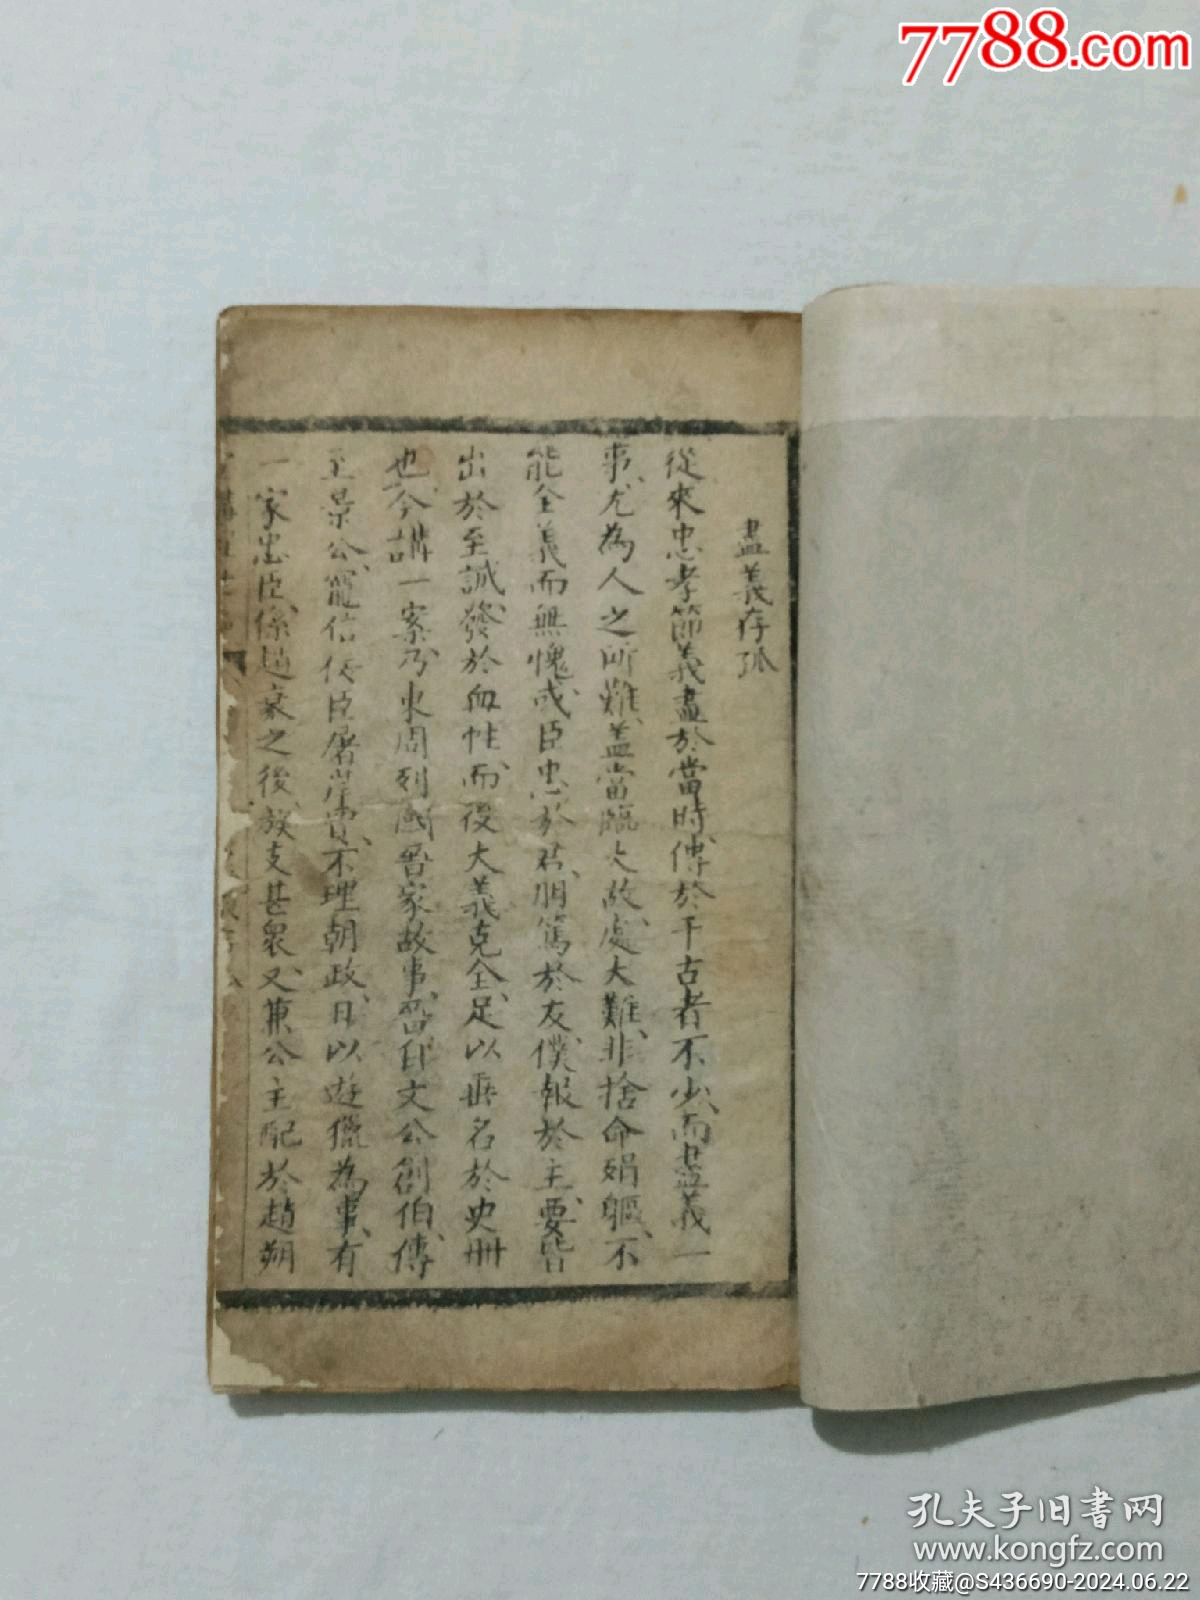 7788.com
盡義存孤
從來忠孝節義盡於當時、傳於千古者不少、而盡義一
事、尤為人之所難、盖當臨大故、處大難、非捨命捐軀、不
能全義而無愧、或臣忠於君、朋篤於友、僕報於主、要皆
出於至誠、發於血性、而後大義克全、足以垂名於史册
也、今講一案、乃東周列國晋家故事、晋自文公創伯、傳
至景公、寵信佞臣屠岸賈、不理朝政、日以遊獵為事、有
一家忠臣、係趙衰之後、族支甚衆、又兼公主配於趙朔
孔夫子旧书网
www.kongfz.com
7788收藏@S436690-2024.06.22